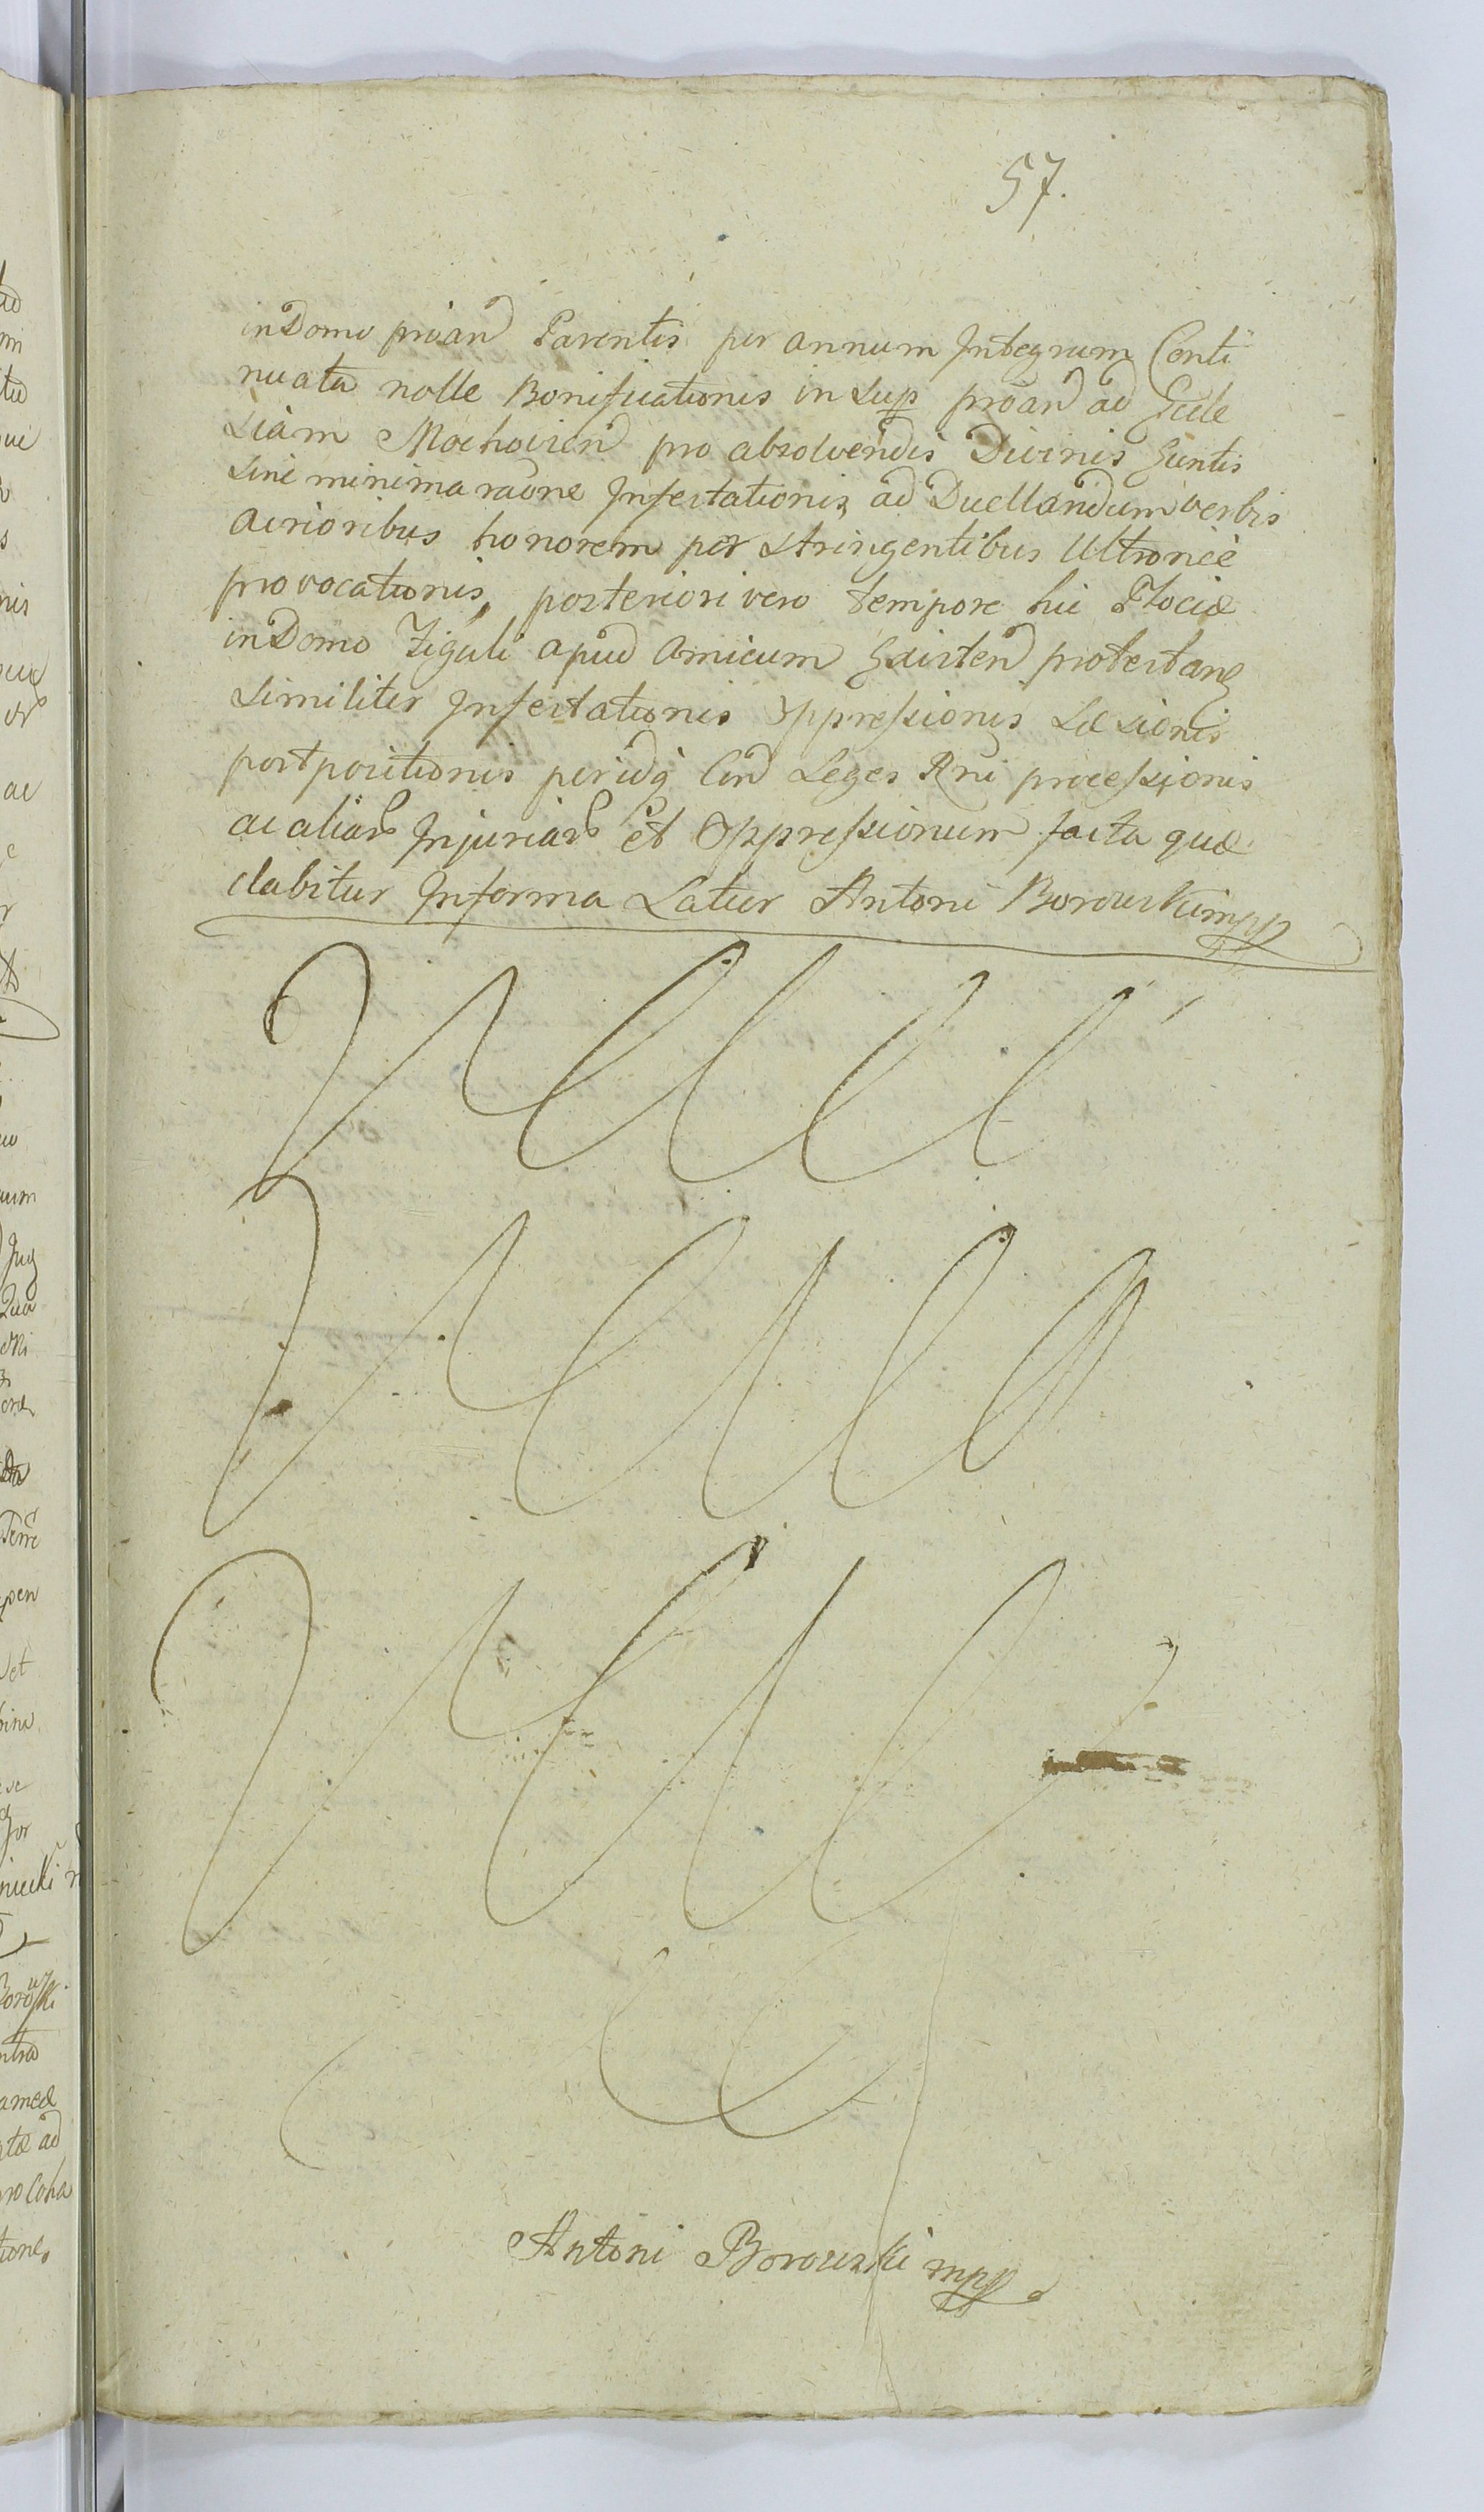 57.
in Domo prōan̄d Parentis per annum Integrum Conti
nuata nolle Bonificationis in sup prōan̄d ad Eccle
siam Mochovien̄ pro absolvendis Divinis Euntis
sine minima raōne Infestationis, ad Duellandum verbis
acrioribus honorem per stringentibus Ultronee
provocationis, posteriori vero tempore hic Plociæ
in Domo Figuli apud Amicum Existen̄ protestan
similiter Infestationis Oppressionis Læsionis
postpositionis peridq Con̄d Leges Rn̄i processionis
ac aliar Injuriar et Oppressionum facta quæ
dabitur In forma Latior Antoni Borowski mpp
Antoni Borowski mpp